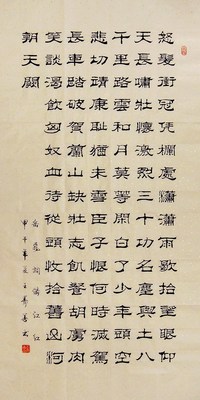 怒髮衝冠凭欄處瀟瀟雨歇抬望眼仰
天長嘯壯懷激烈三十功名塵與土八
千里路雲和月莫等閑白了少年頭空
悲切靖康恥猶未雪臣子恨何時滅駕
長車踏破賀蘭山缺壯志飢餐胡虜肉
笑談渴飲匈奴血待從頭收拾舊山河
朝天闕
岳飛詞滿江紅
甲午年